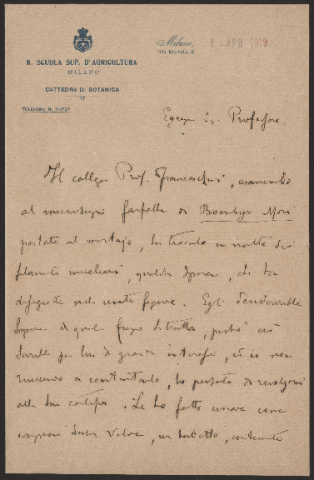 R. SCUOLA SUP. D'AGRICOLTURA
MILANO
CATTEDRA DI BOTANICA
Milano, 1 APR 1919
TELEFONO N.
Egregio Sig. Professore.
Il collega Prof. Franceschini, esaminando
al microscopio farfalle di Bombyx Mori
pestate al mortajo, ha trovato in mezzo ai
filamenti miceliari, qualche spora, che ha
disegnato nelle unite figure. Egli desidererebbe
sapere di quale fungo si tratta, perchè ciò
sarebbe per lui di grande interesse, ed io non
riuscendo a contentarlo, ho pensato di rivolgermi
alla sua cortesia. Le ho fatto unire come
campione senza valore, un tubetto, contenente